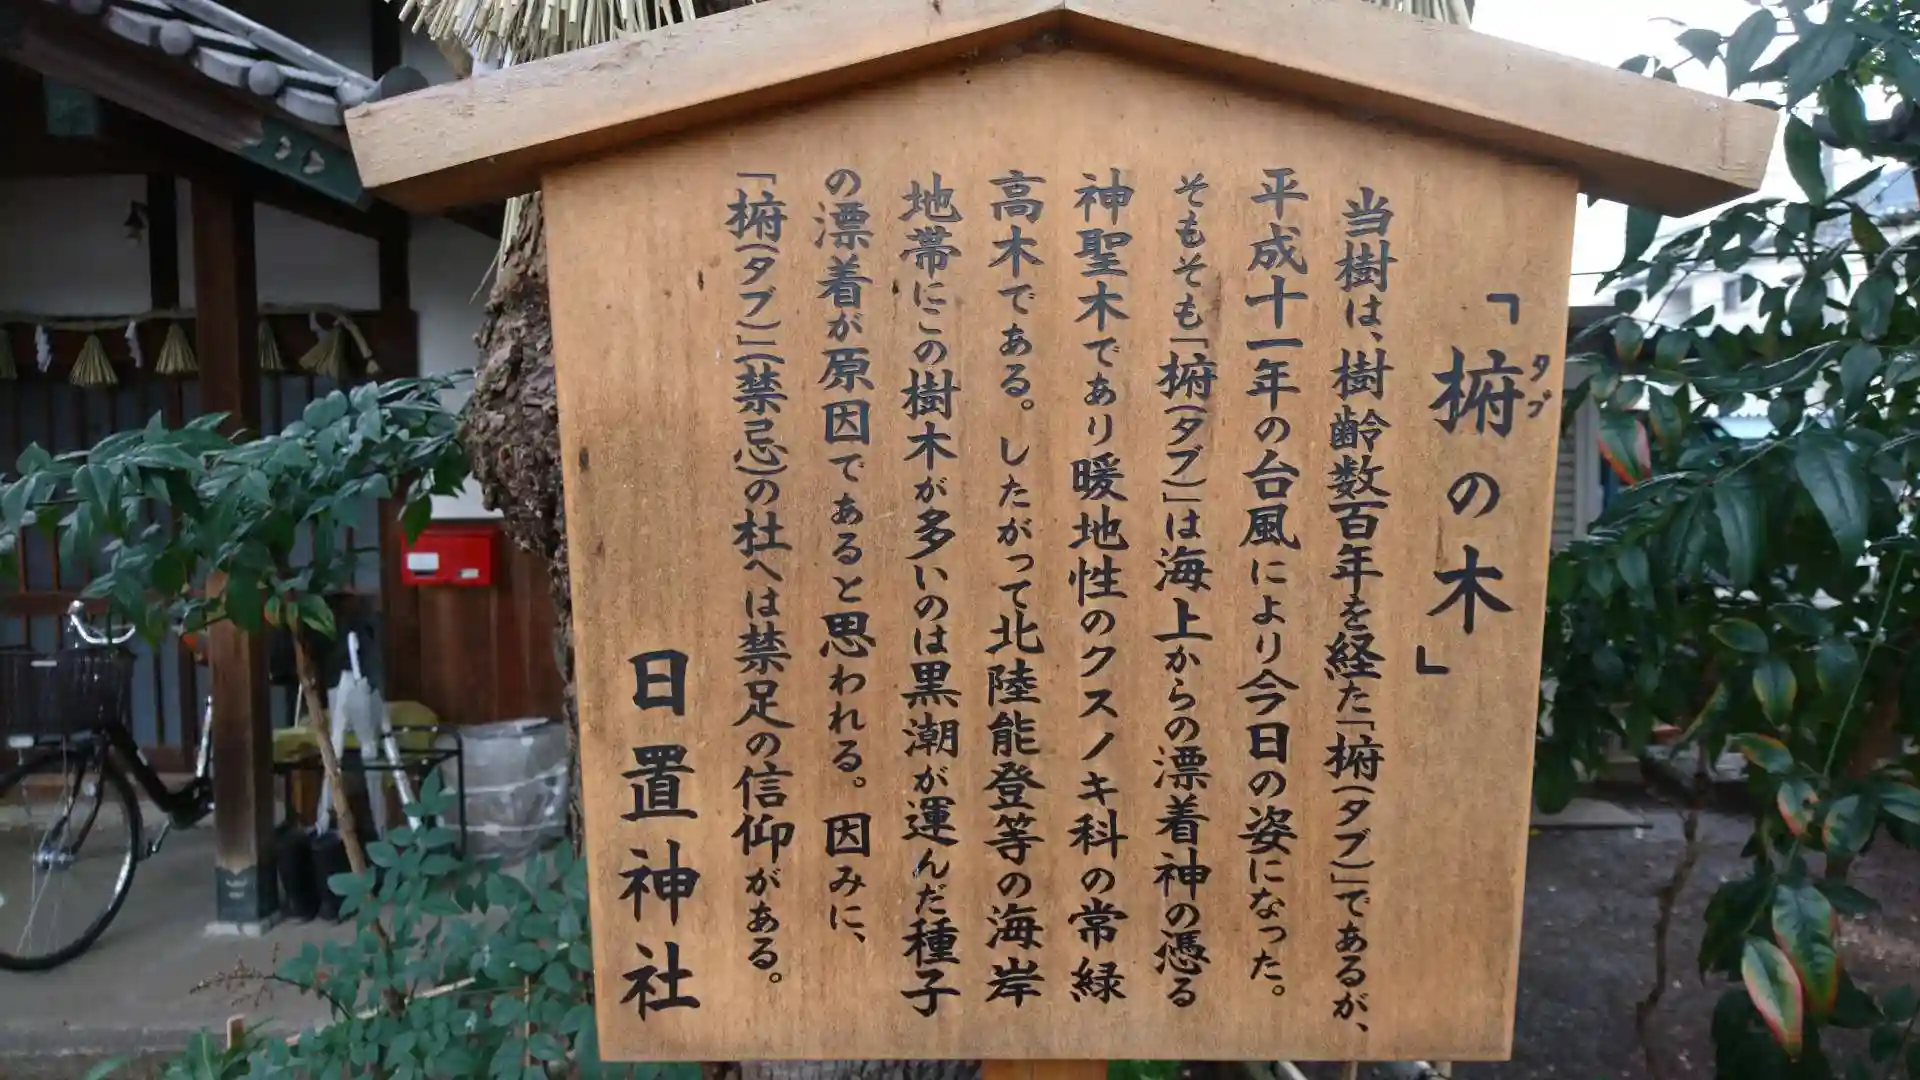 「椨の木」
タブ
当樹は、樹齢数百年を経た「椨(タブ)」であるが、
平成十一年の台風により今日の姿になった。
そもそも「椨(タブ)」は海上からの漂着神の憑る
神聖木であり暖地性のクスノキ科の常緑
高木である。したがって北陸能登等の海岸
地帯にこの樹木が多いのは黒潮が運んだ種子
の漂着が原因であると思われる。因みに、
「椨(タブ)」(禁忌)の杜へは禁足の信仰がある。
日置神社